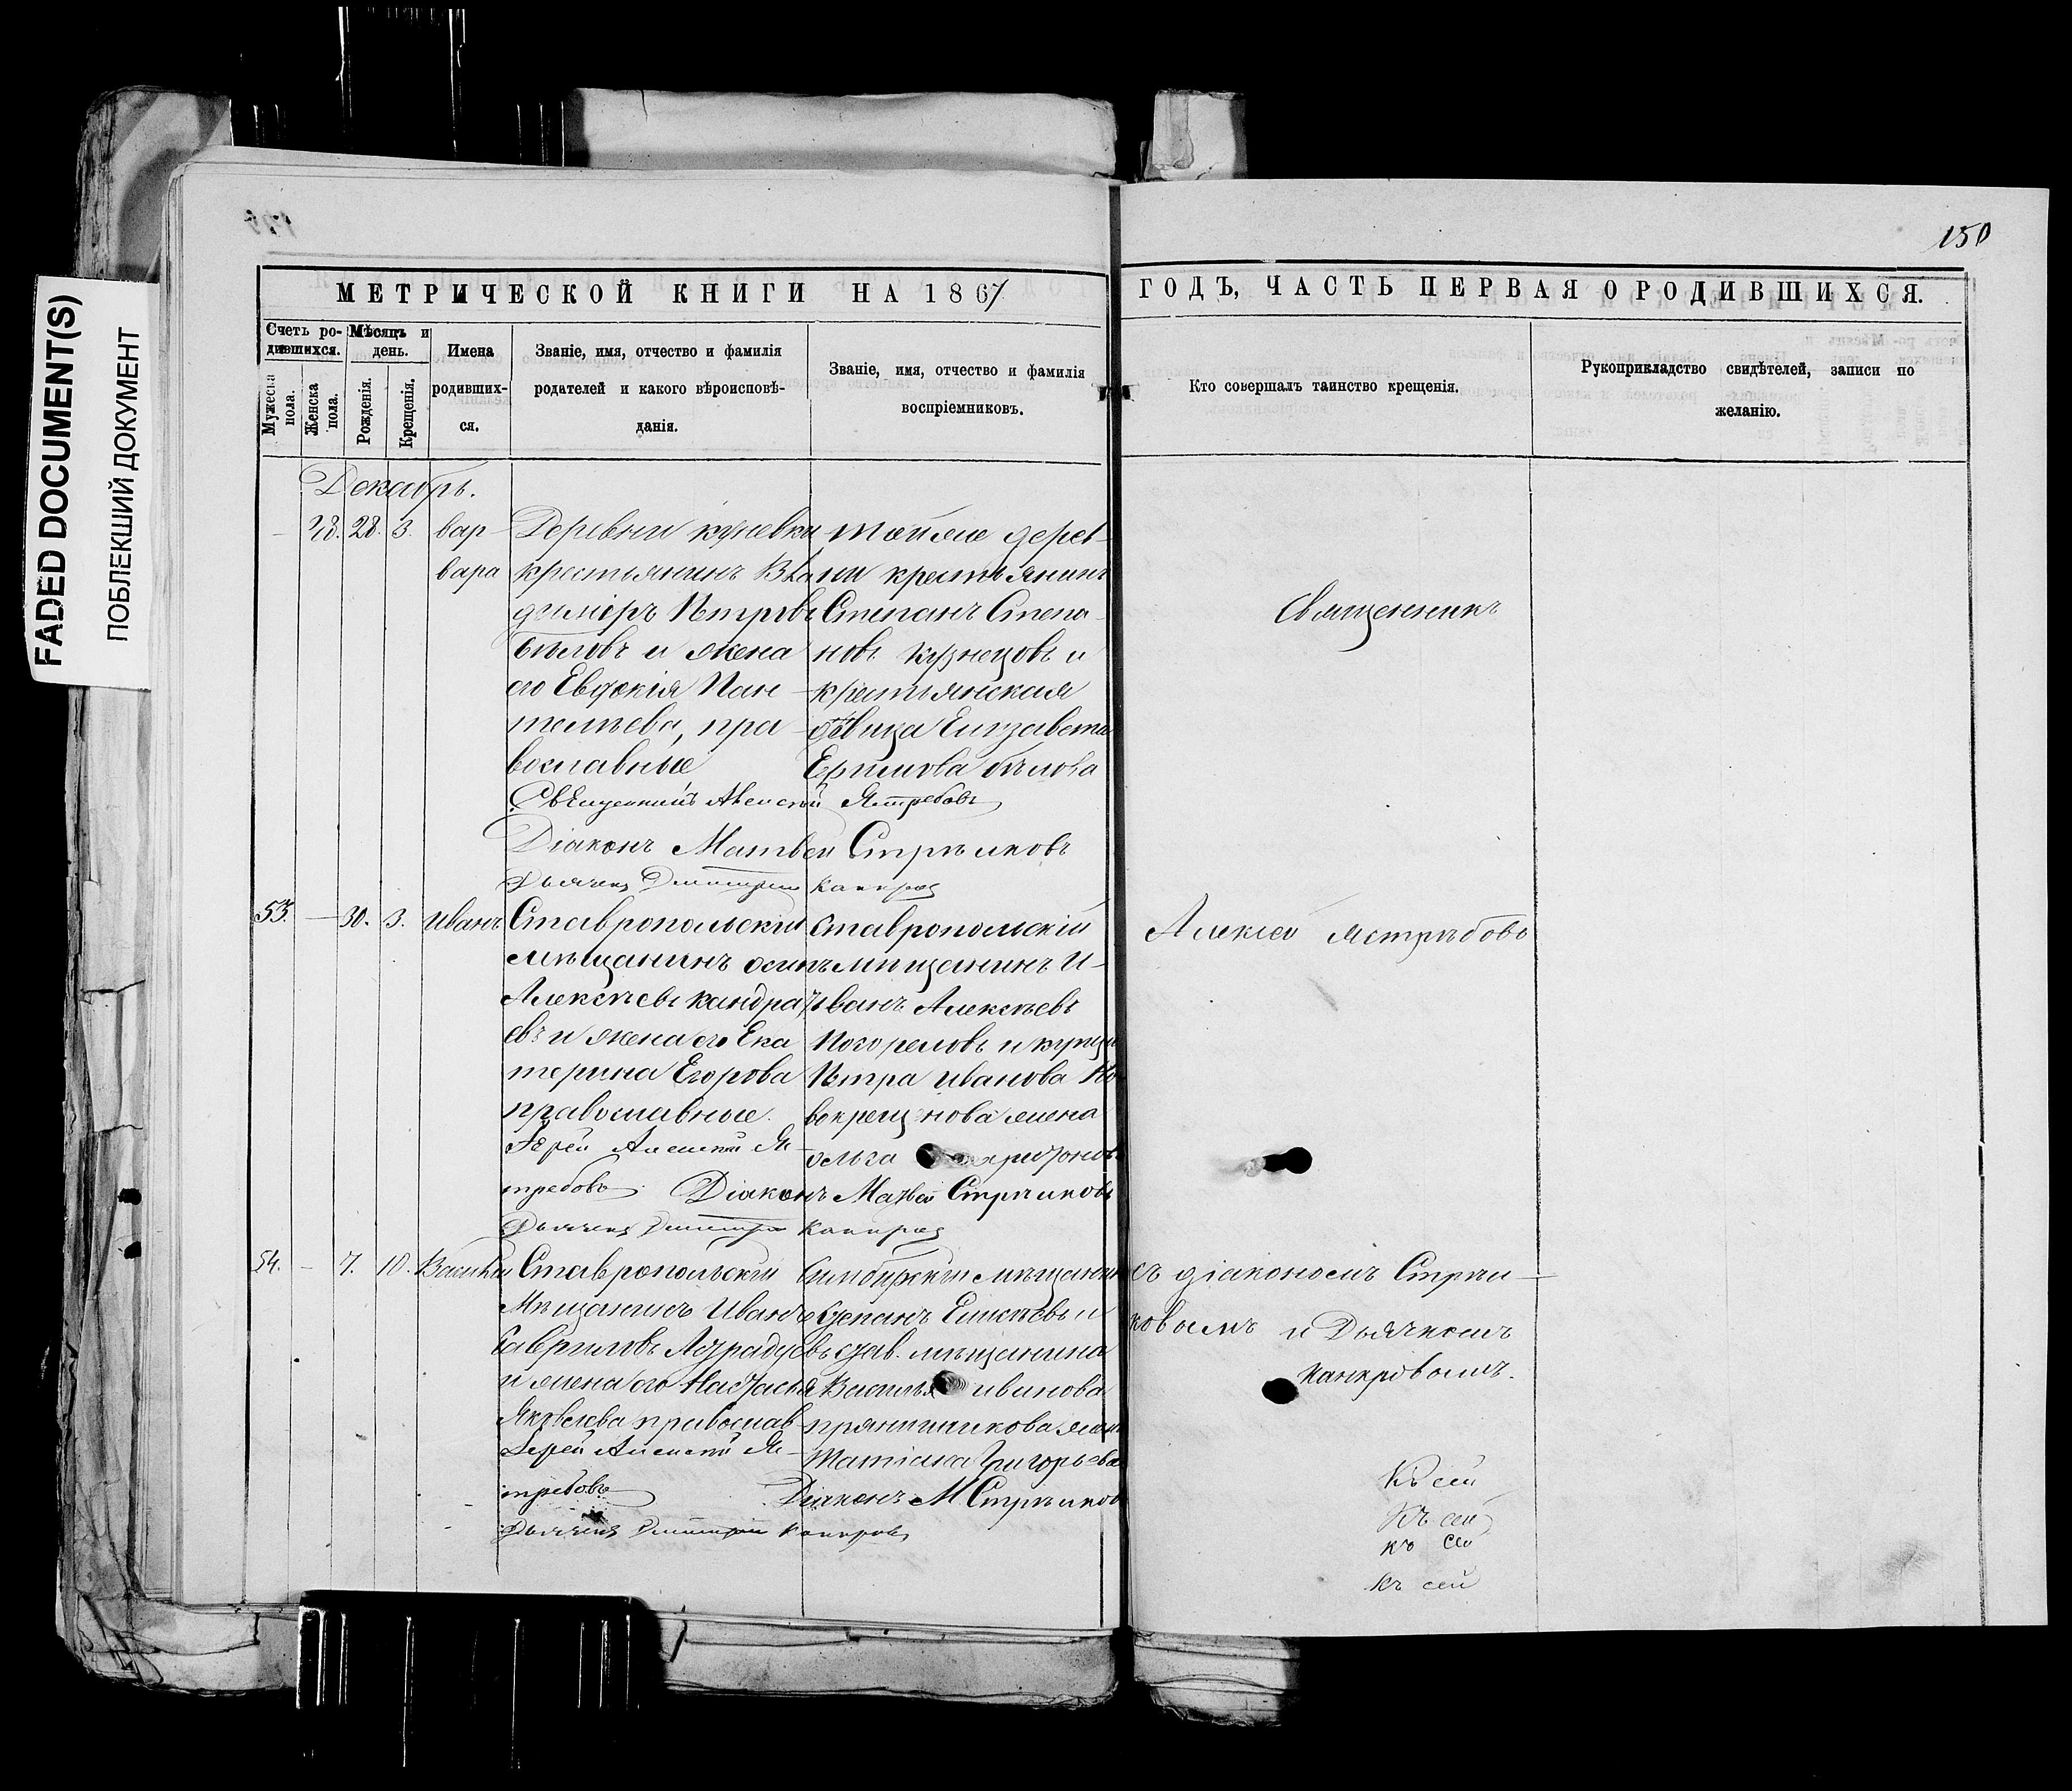 FADED DOCUMENT(S)
ПОБЛЕКШИЙ ДОКУМЕНТ
150
МЕТРИЧЕСКОЙ КНИГИ НА 1867
ГОДЪ, ЧАСТЬ ПЕРВАЯ О РОДИВШИХСЯ.
Счетъ родившихся.
Мужеска пола.
Женска пола.
Мѣсяцъ и день.
Рожденія.
Крещенія.
Имена родившихся.
Званіе, имя, отчество и фамилія
родителей и какого вѣроисповѣ-
данія.
Званіе, имя, отчество и фамилія
воспріемниковъ.
Кто совершалъ таинство крещенія.
Рукоприкладство свидѣтелей, записи по
желанію.
Декабрь.
48. 28. 3. вар-
вара
Деревни
крестьянинъ Вла
димiръ Петровъ
Бѣловъ и жена
его Евдокія Пан-
телѣева, пра-
вославные
тойже дерев-
ни крестьянинъ
Степанъ Степа-
новъ Кузнецовъ и
крестьянская
дѣвица Елизавета
Ермилова Бѣлова
Священникъ Алексiй Ястребовъ
Діаконъ Матвей Стрѣлковъ
Дьячекъ Дмитрий
53. — 30. 3. Иванъ
Ставропольский
мѣщанинъ осипъ
Алексѣевъ кандрать
евъ и жена его Ека
терина Егорова
православные.
Ставропольскій
мѣщанинъ И-
ванъ Алексѣевъ
Погореловъ и купца
Петра Иванова Но-
вокрещенова жена
ольга
Іерей Алексiй Яс-
требовъ
Діаконъ Матвей Стрѣлковъ
Дьячекъ Дмитрий
54. — 7. 10. Василiй
Ставропольскій
Мѣщанинъ Иванъ
Гавриловъ
и жена его Настасья
Яковлева православ
Симбирскій мѣщанинъ
Степанъ Елисѣевъ и
став. мѣщанина
Василья иванова
прянишникова жена
Григорьева
Іерей Алексiй Яс-
требовъ
Діаконъ М Стрѣлковъ
Дьячекъ Дмитрий
Священникъ
Алексей Ястребовъ
съ діакономъ Стрѣл-
ковымъ и Дьячкомъ
Канкровымъ.
Къ сей
Къ сей
къ сей
къ сей